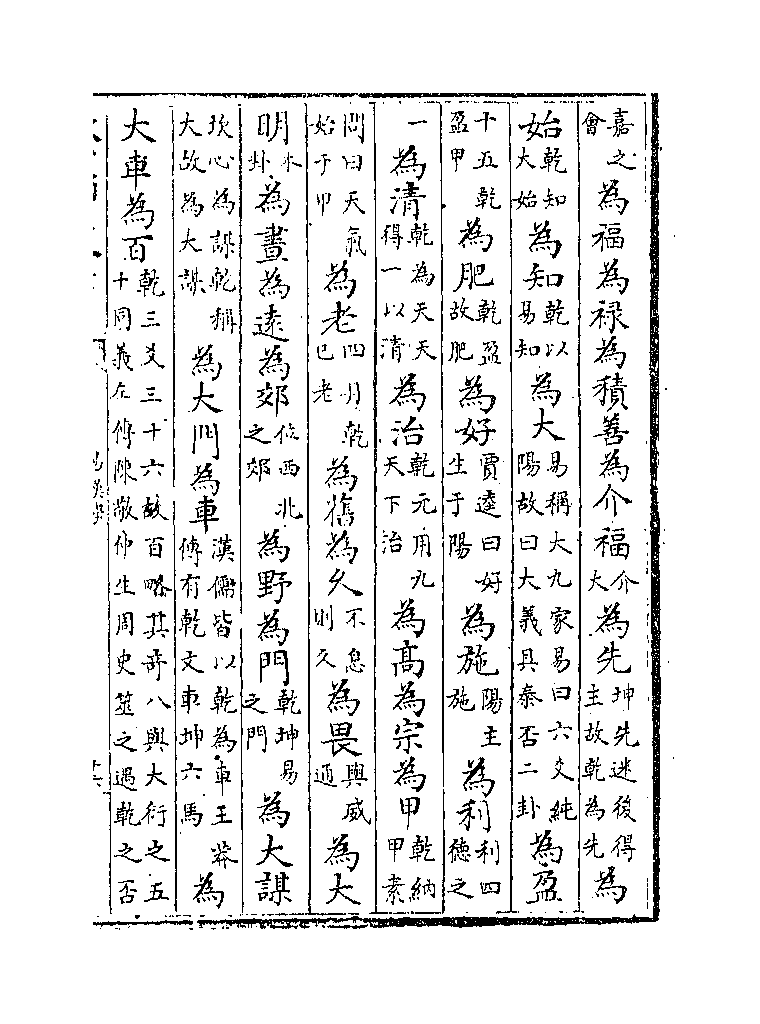 嘉之會為福為禄為積善為介福介大為先坤先迷後得主故乾為先為
始乾知大始為知乾以易知為大易稱大九家易曰六爻純陽故曰大義具泰否二卦為盈
十五乾盈甲為肥乾盈故肥為好賈逵曰好生于陽為施陽主施為利利四德之
一為清乾為天天得一以清為治乾元用九天下治為高為宗為甲乾納甲素
問曰天氣始于甲為老四月乾已老為舊為久不息則久為畏與威通為大
明本卦為晝為遠為郊位西北之郊為野為門乾坤易之門為大謀
坎心為謀乾稱大故為大謀為大門為車漢儒皆以乾為車王莽傳有乾文車坤六馬為
大車為百乾三爻三十六故百略其奇八與大衍之五十同義左傳陳敬仲生周史筮之遇乾之否
易漢學